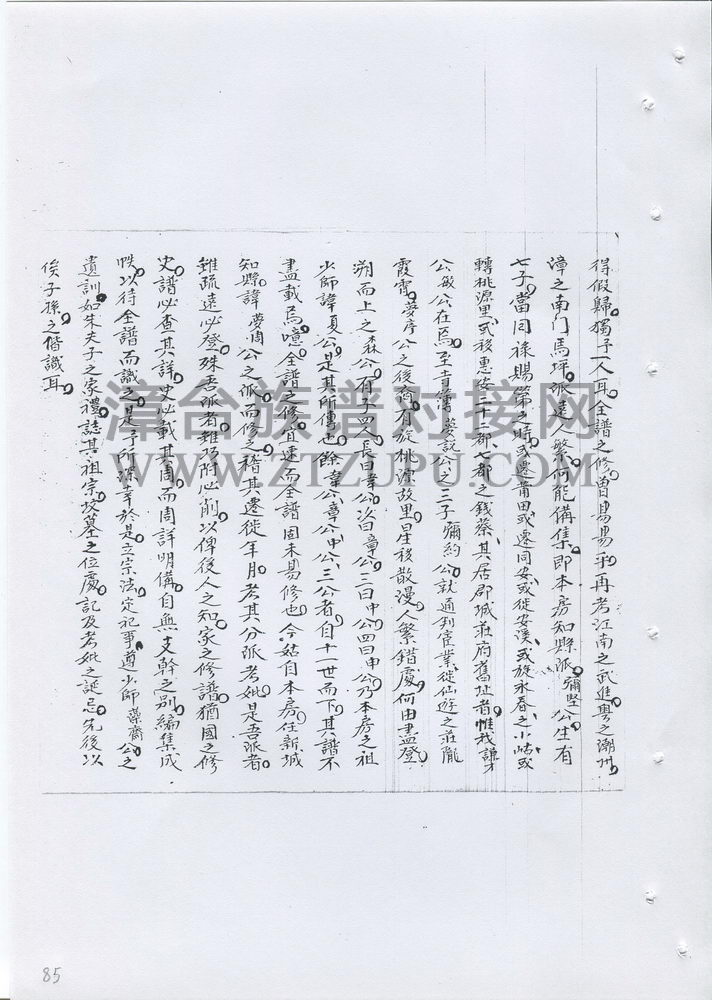 得假歸。獨予一人耳。全譜之修。曾易易乎。再考江南之武進。粵之潮州。
漳之南门馬坪。派遠人繁。何能俻集。即本房知縣派。彌堅公。生有
七子。當同祿賜第之時。或遷莆田。或遷同安。或徙安溪。或旋永春之小岵。或
轉桃源里。或移惠安二十二都七都之錢蔡。其居郡城莊府舊址者。惟我謙才
公敏公在焉。至青陽夢説公之三子彌約公。就通判舊業。徙仙遊之莊隴
霞霄。夢彦公之後裔。有旋桃源故里。星移散漫。人繁錯處。何由盡登。
朔而上之。森公有子四。長曰韋公。次曰章公。三曰中公。四曰申公。乃本房之祖
少師諱夏公。是其所傳也。餘韋公章公中公三公者。自十一世而下。其譜不
盡載焉。噫。全譜之修宜速。而全譜固未易修也。今姑自本房住新城
知縣諱夢周公之派而修之。稽其遷徙年月。考其分派考妣。是吾派者。
雖疏遠必登。殊吾派者。雖巧附必削。以俾後人之知家之修譜。猶國之修
史。譜必查其詳。史必載其周。而周詳明俻。自無支幹之别。編集成
帙。以待全譜而識之。是予所深幸。於是立宗法。定祀事。遵少師藻齋公之
遺訓。如朱夫子之家禮。誌其祖宗坟墓之位處。記及考妣之誕忌。先後以
俟子孫之偕識耳。
漳台族谱对接网
WWW.ZTZUPU.COM
85